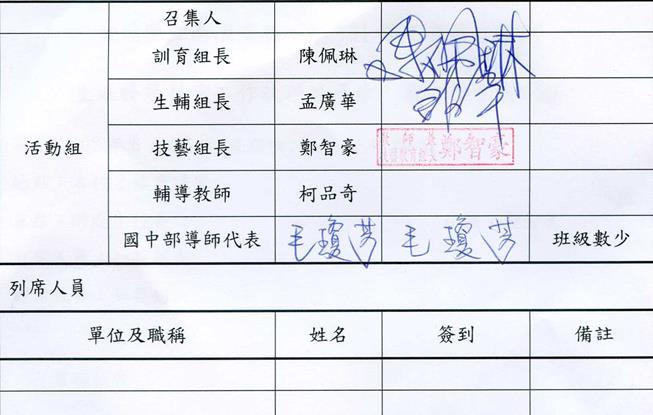 召集人
訓育組長 陳佩琳 陳佩琳
生輔組長 孟廣華
活動組 技藝組長 鄭智豪 鄭智豪
輔導教師 柯品奇
國中部導師代表 毛瓊芳 毛瓊芳 班級數少
列席人員
單位及職稱 姓名 簽到 備註